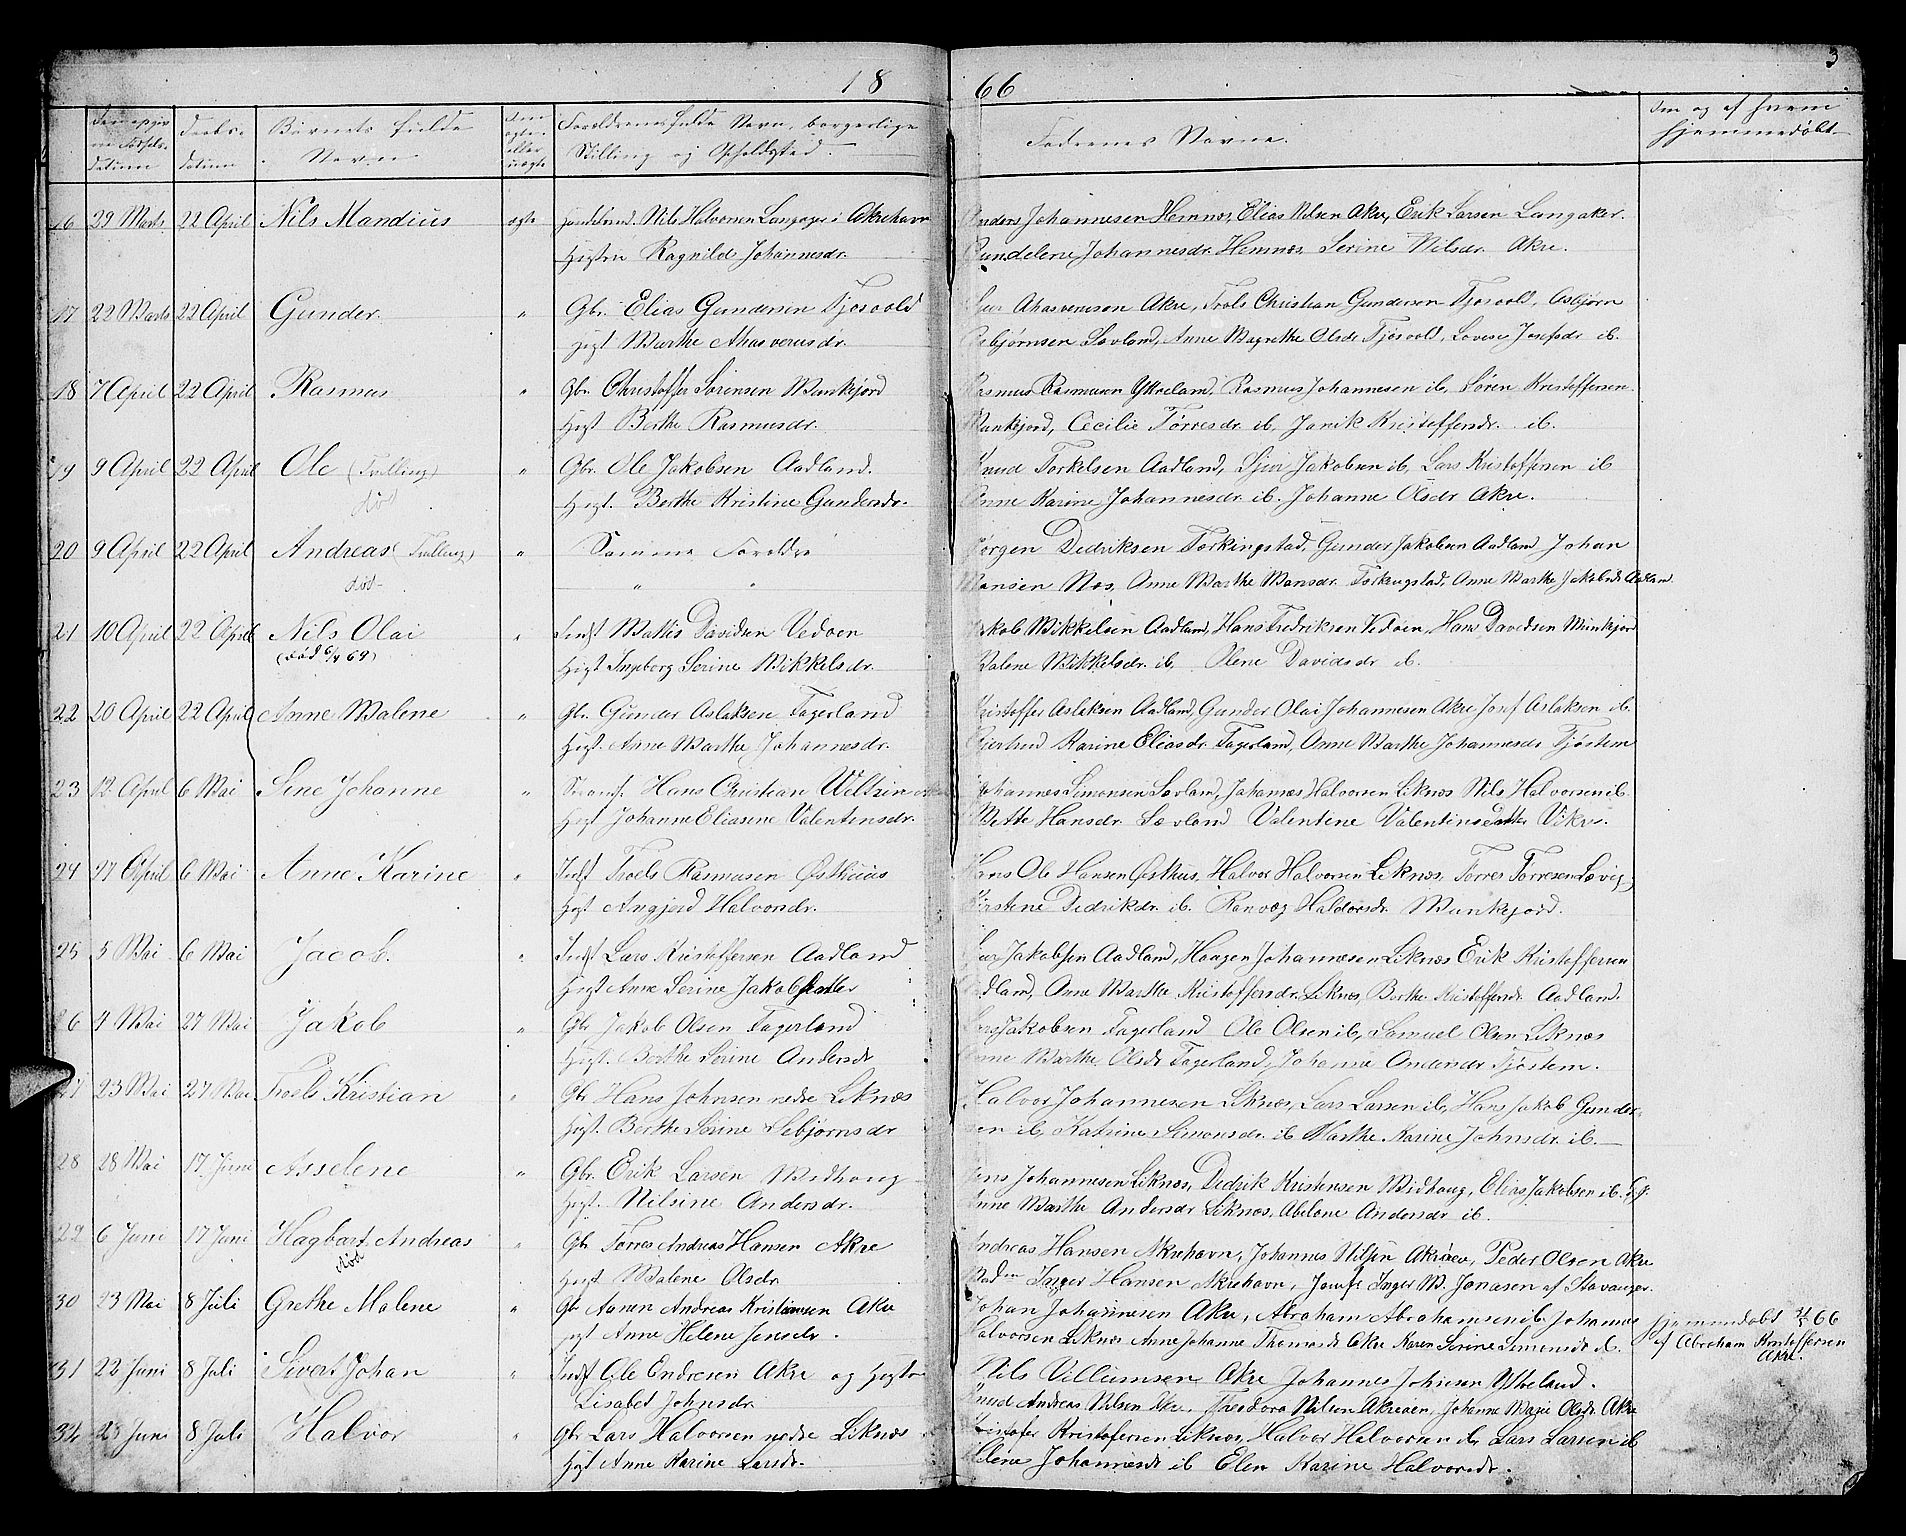 18 66
3
Daabs-
datum
Børnets fulde
Navn
Forældrenes fulde Navn, borgerlige
Stilling og Opholdssted.
Faddernes Navne.
Om og af hvem
hjemmedøbt
16 29 Marts 22 April Nils Mandius ægte Nils Halvorsen Langager i Akrehavn
Anders Johannesen Hemnes, Elias Nilsen Akre, Erik Larsen Langaker.
Hustru Ragnild Johannesdr.
Gundelene Johannesdr. Hemnes, Serine Nilsdr. Akre.
17 22 Marts 22 April Gunder " Gbr. Elias Gundersen Tjosvold
Sjur Ahasverusen Akre, Trols Christian Gundersen Tjosvold, Asbjørn
Hegt Marthe Ahasverusdr.
Asbjørnsen Sævland, Anne Magrethe Olsdr Tjosvold, Lovise Josefsdr ib.
18 7 April 22 April Rasmus " Gbr. Christoffer Sørensen Munkejord
Rasmus Rasmusen Ytreland, Rasmus Johannesen ib, Søren Kristoffersen
Hegt Berthe Rasmusdr.
Munkejord, Cecilie Tørresdr. ib, Janik Kristoffersdr. ib.
19 9 April 22 April Ole (Tvilling) " Gbr. Ole Jakobsen Aadland.
død
Knud Torkelsen Aadland, Sjur Jakobsen ib, Lars Kristoffersen ib
Hegt. Berthe Kristine Gundersdr.
Anne Karine Johannesdr. ib. Johanne Olsdr Akre.
20 9 April 22 April Andreas (Tvilling) " Samme Forældre
død
Jørgen Dedriksen Torkingstad, Gunder Jakobsen Aadland Johan
" "
Mansen Nes, Anne Marthe Mansdr. Torkingstad, Anne Marthe Jakobsdr Aadland
21 10 April 22 April Nils Olai " Indst Mattis Davidsen Vedøen
(død 6/4 69)
Jakob Mikkelsen Aadland, Hans Fredriksen Vedøen, Hans Davidsen Munkejord
Hegt Ingeborg Serine Mikkelsdr.
Malene Mikkelsdr. ib, Olene Davidsdr ib.
22 20 April 22 April Anne Malene " Gbr. Gunder Aslaksen Fagerland
Kristoffer Aslaksen Aadland, Gunder Olai Johannesen Akre Josef Aslaksen ib.
Hegt. Anne Marthe Johannesdr.
Gjertrud Karine Eliasdr. Fagerland, Anne Marthe Johannesdr Tjøstem
23 12 April 6 Mai Sine Johanne " Hans Christian Weldzin
Johannes Simonsen Sævland, Johannes Halvorsen Liknes Nils Halvorsen ib.
Hegt Johanne Eliasine Valentinsdr.
Mette Hansdr. Sævland Valentine Valentinsdatter Vikre.
24 27 April 6 Mai Anne Karine " Indst Troels Rasmusen Østhuus
Hans Ole Hansen Østhus, Halvor Halvorsen Liknes, Torres Torresen Sævig,
Hegt Angjerd Halvorsdr.
Kirstene Dedrikdr. ib. Ranvæg Haldorsdr. Munkejord.
25 5 Mai 6 Mai Jacob. " Indst Lars Kristoffersen Aadland
Sjur Jakobsen Aadland, Haagen Johannesen Liknes Erik Kristoffersen
Hegt Anne Serine Jakobsdatter
Aadland, Anne Marthe Kristoffersdr. Liknes, Berthe Kristoffersdr. Aadland.
26 4 Mai 27 Mai Jakob " Gbr Jakob Olsen Fagerland
Lars Jakobsen Fagerland Ole Olsen ib, Samuel Olsen Liknes
Hegt. Berthe Serine Andersdr
Anne Marthe Olsdr Fagerland, Johanne Andersdr Tjøstem.
27 23 Mai 27 Mai Troels Kristian " Gbr Hans Johnsen nedre Liknes
Halvor Johannesen Liknes, Lars Larsen ib, Hans Jakob Gunder-
Hegt. Berthe Serine Asbjørnsdr
sen ib, Katrine Simonsdr. ib Marthe Karine Johnsdr. ib.
28 28 Mai 17 Juni Asselene " Gbr. Erik Larsen Midhaug
Jens Johannesen Liknes, Dedrik Kristensen Midhaug, Elias Jakobsen ib.
Hegt. Nilsine Andersdr.
Anne Marthe Andersdr Liknes, Abelone Andersdr ib.
29 6 Juni 17 Juni Hagbart Andreas " Gbr Torres Andreas Hansen Akre
død
Andreas Hansen Akrehavn, Johannes Nilsen Akreøen, Peder Olsen Akre
Hegt Malene Olsdr
Madm Inger Hansen Akrehavn, Jomfr Inger M. Jonasen af Stavanger.
30 23 Mai 8 Juli Grethe Malene " Gbr Aanen Andreas Kristiansen Akre
Johan Johannesen Akre, Abraham Abrahamsen ib. Johannes
hjemmedøbt 66
Hegt Anne Helene Jensdr.
Halvorsen Liknes Anne Johanne Thomasdr Akre Karen Serine Simonsdr ib.
af Abraham Kristoffersen
Akre.
31 22 Juni 8 Juli Sivert Johan " Indst Ole Endresen Akre og Hustru
Nils Villumsen Akre Johannes Johnsen Ytreland.
Lisabet Johnsdr.
Knud Andreas Nilsen Akre, Theodora Nilsen Akreøen, Johanne Marie Olsdr Akre
32 23 Juni 8 Juli Halvor " Gbr Lars Halvorsen nedre Liknes
Kristofer Kristofersen Liknes, Halvor Halvorsen ib, Lars Larsen ib
Hegt Anne Karine Larsdr.
Helene Johannesdr ib Elen Karine Halvorsdr.